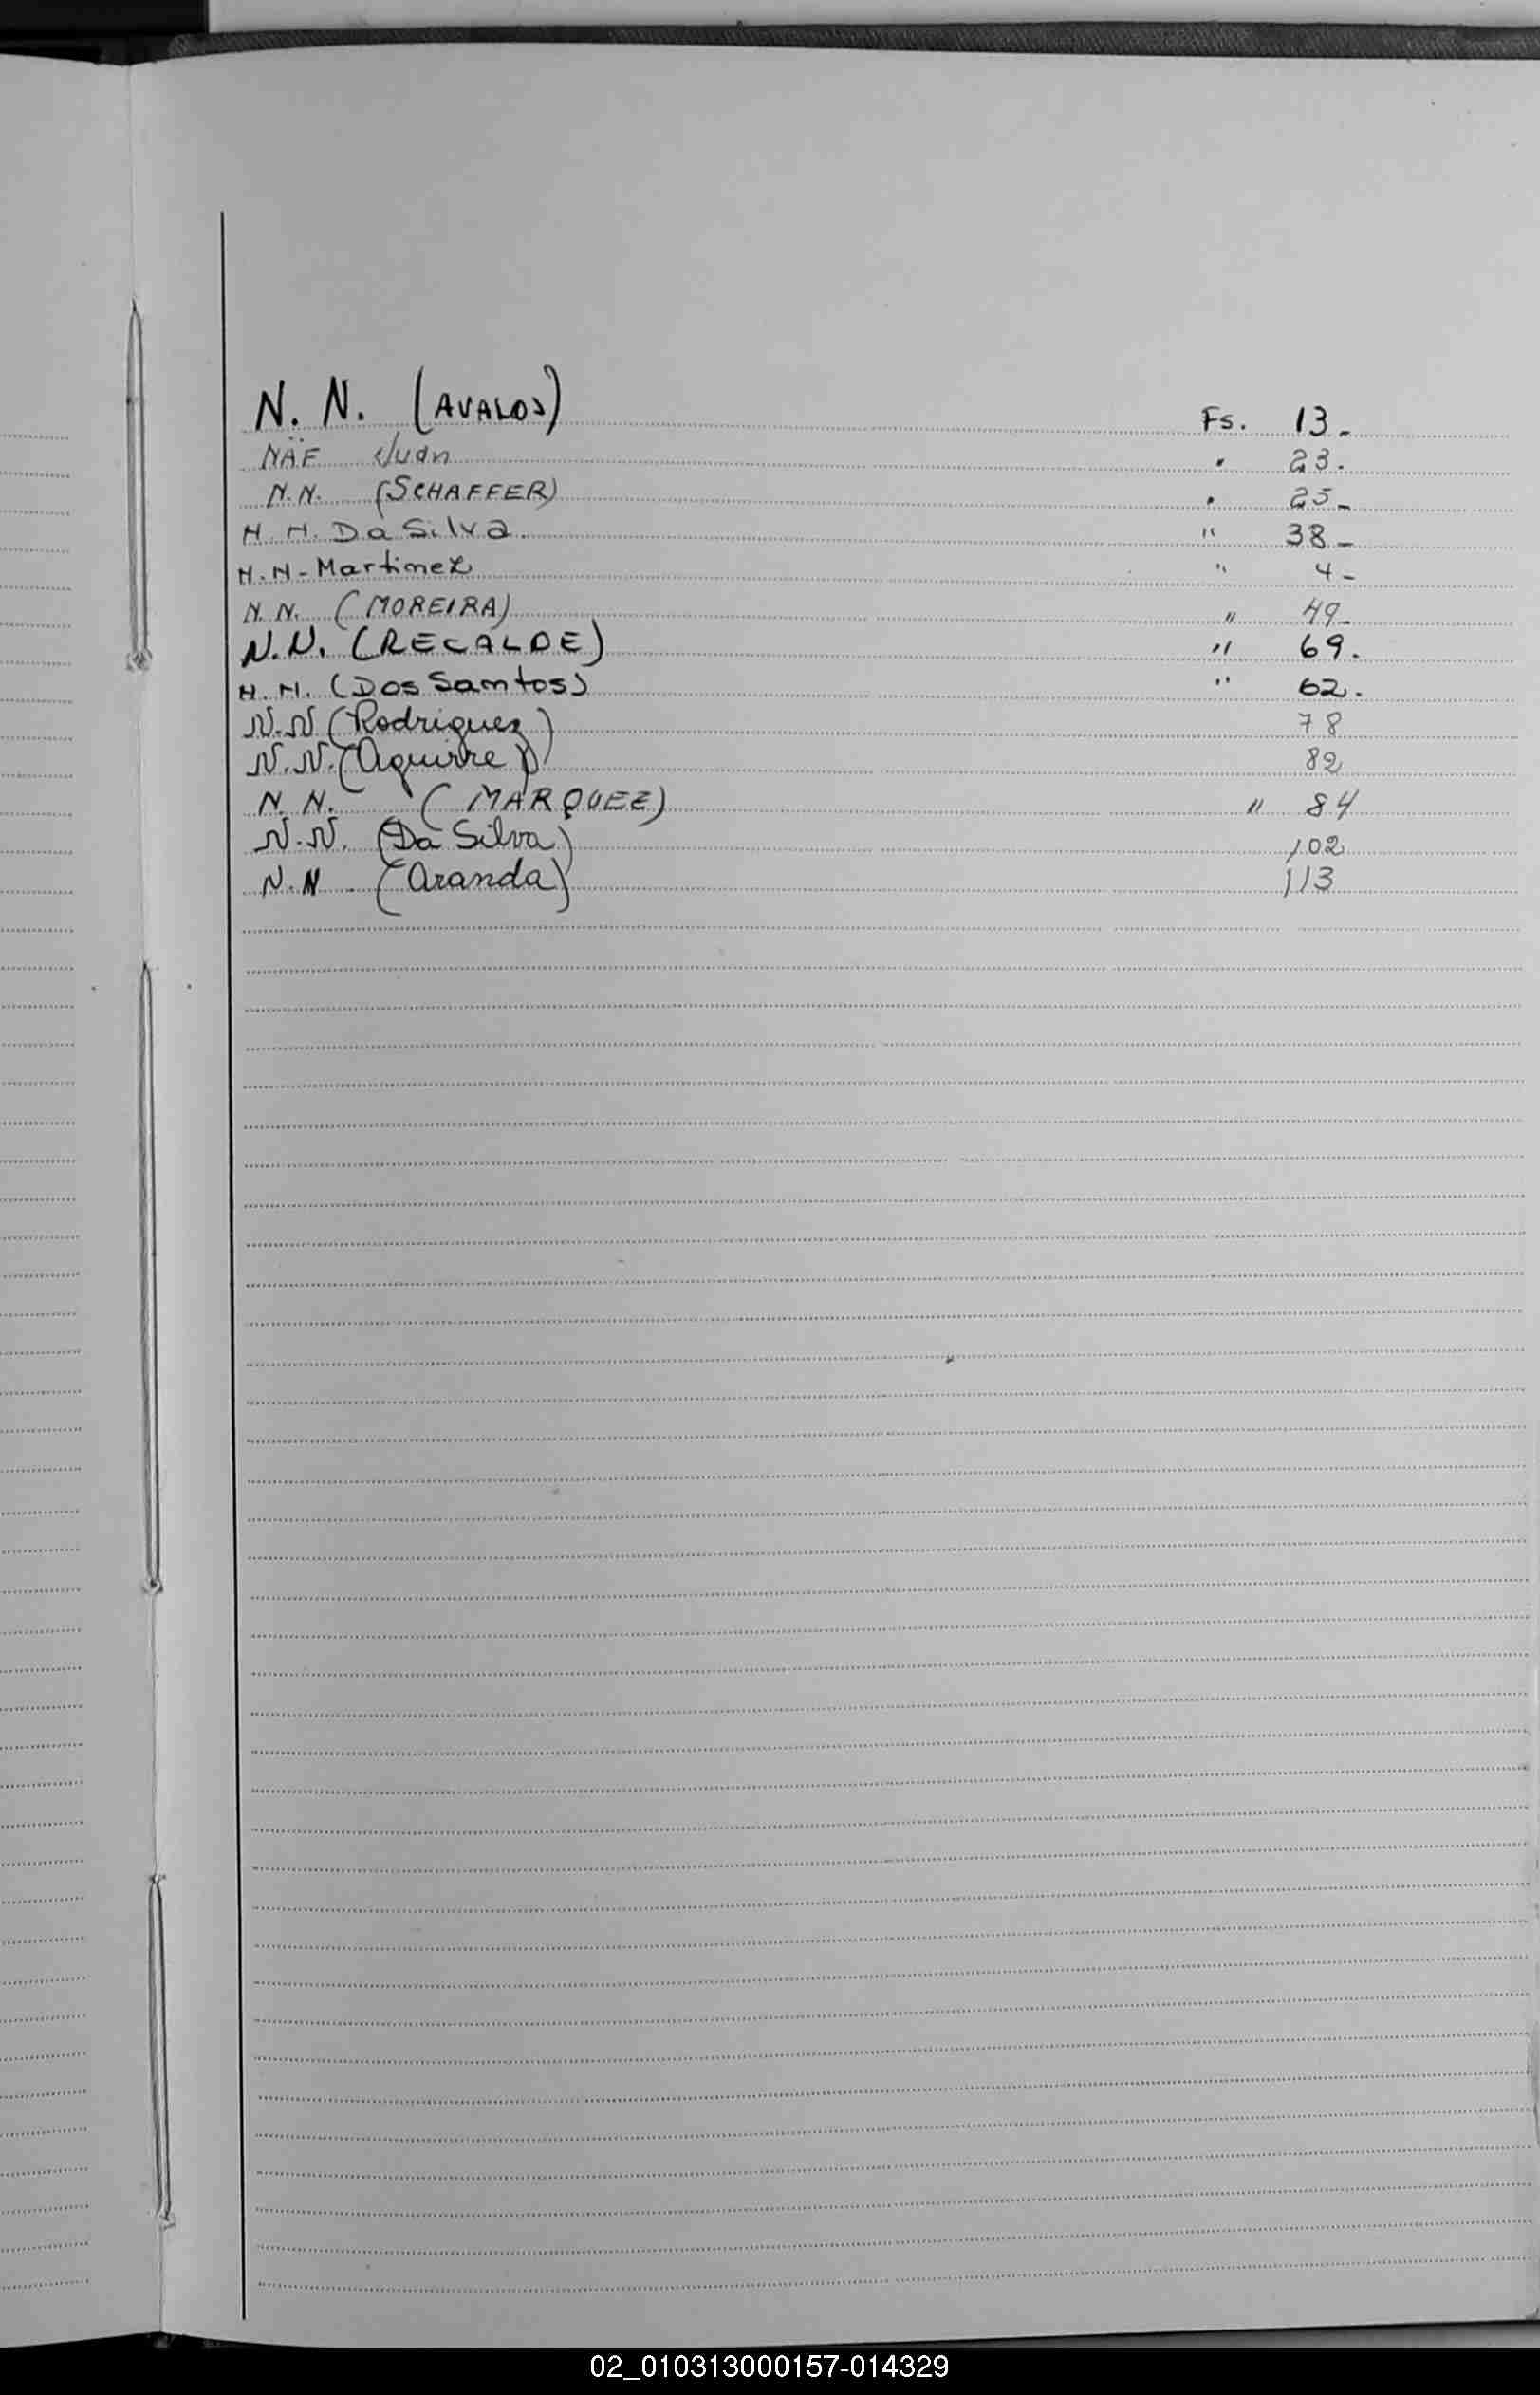 N. N. (AVALOS) Fs. 13-
NÄF Juan " 23.
N.N. (SCHAFFER) " 25-
N. N. Da Silva. " 38-
N.N-Martinez " 4-
N.N. (MOREIRA) " 49-
N.N. (RECALDE) " 69.
N.N. (Dos Santos) " 62.
N.N (Rodriguez) 78
N.N. (Aguirre) 82
N. N. (MARQUEZ) " 84
N.N. (Da Silva) 102
N.N (Aranda) 113
02_010313000157-014329